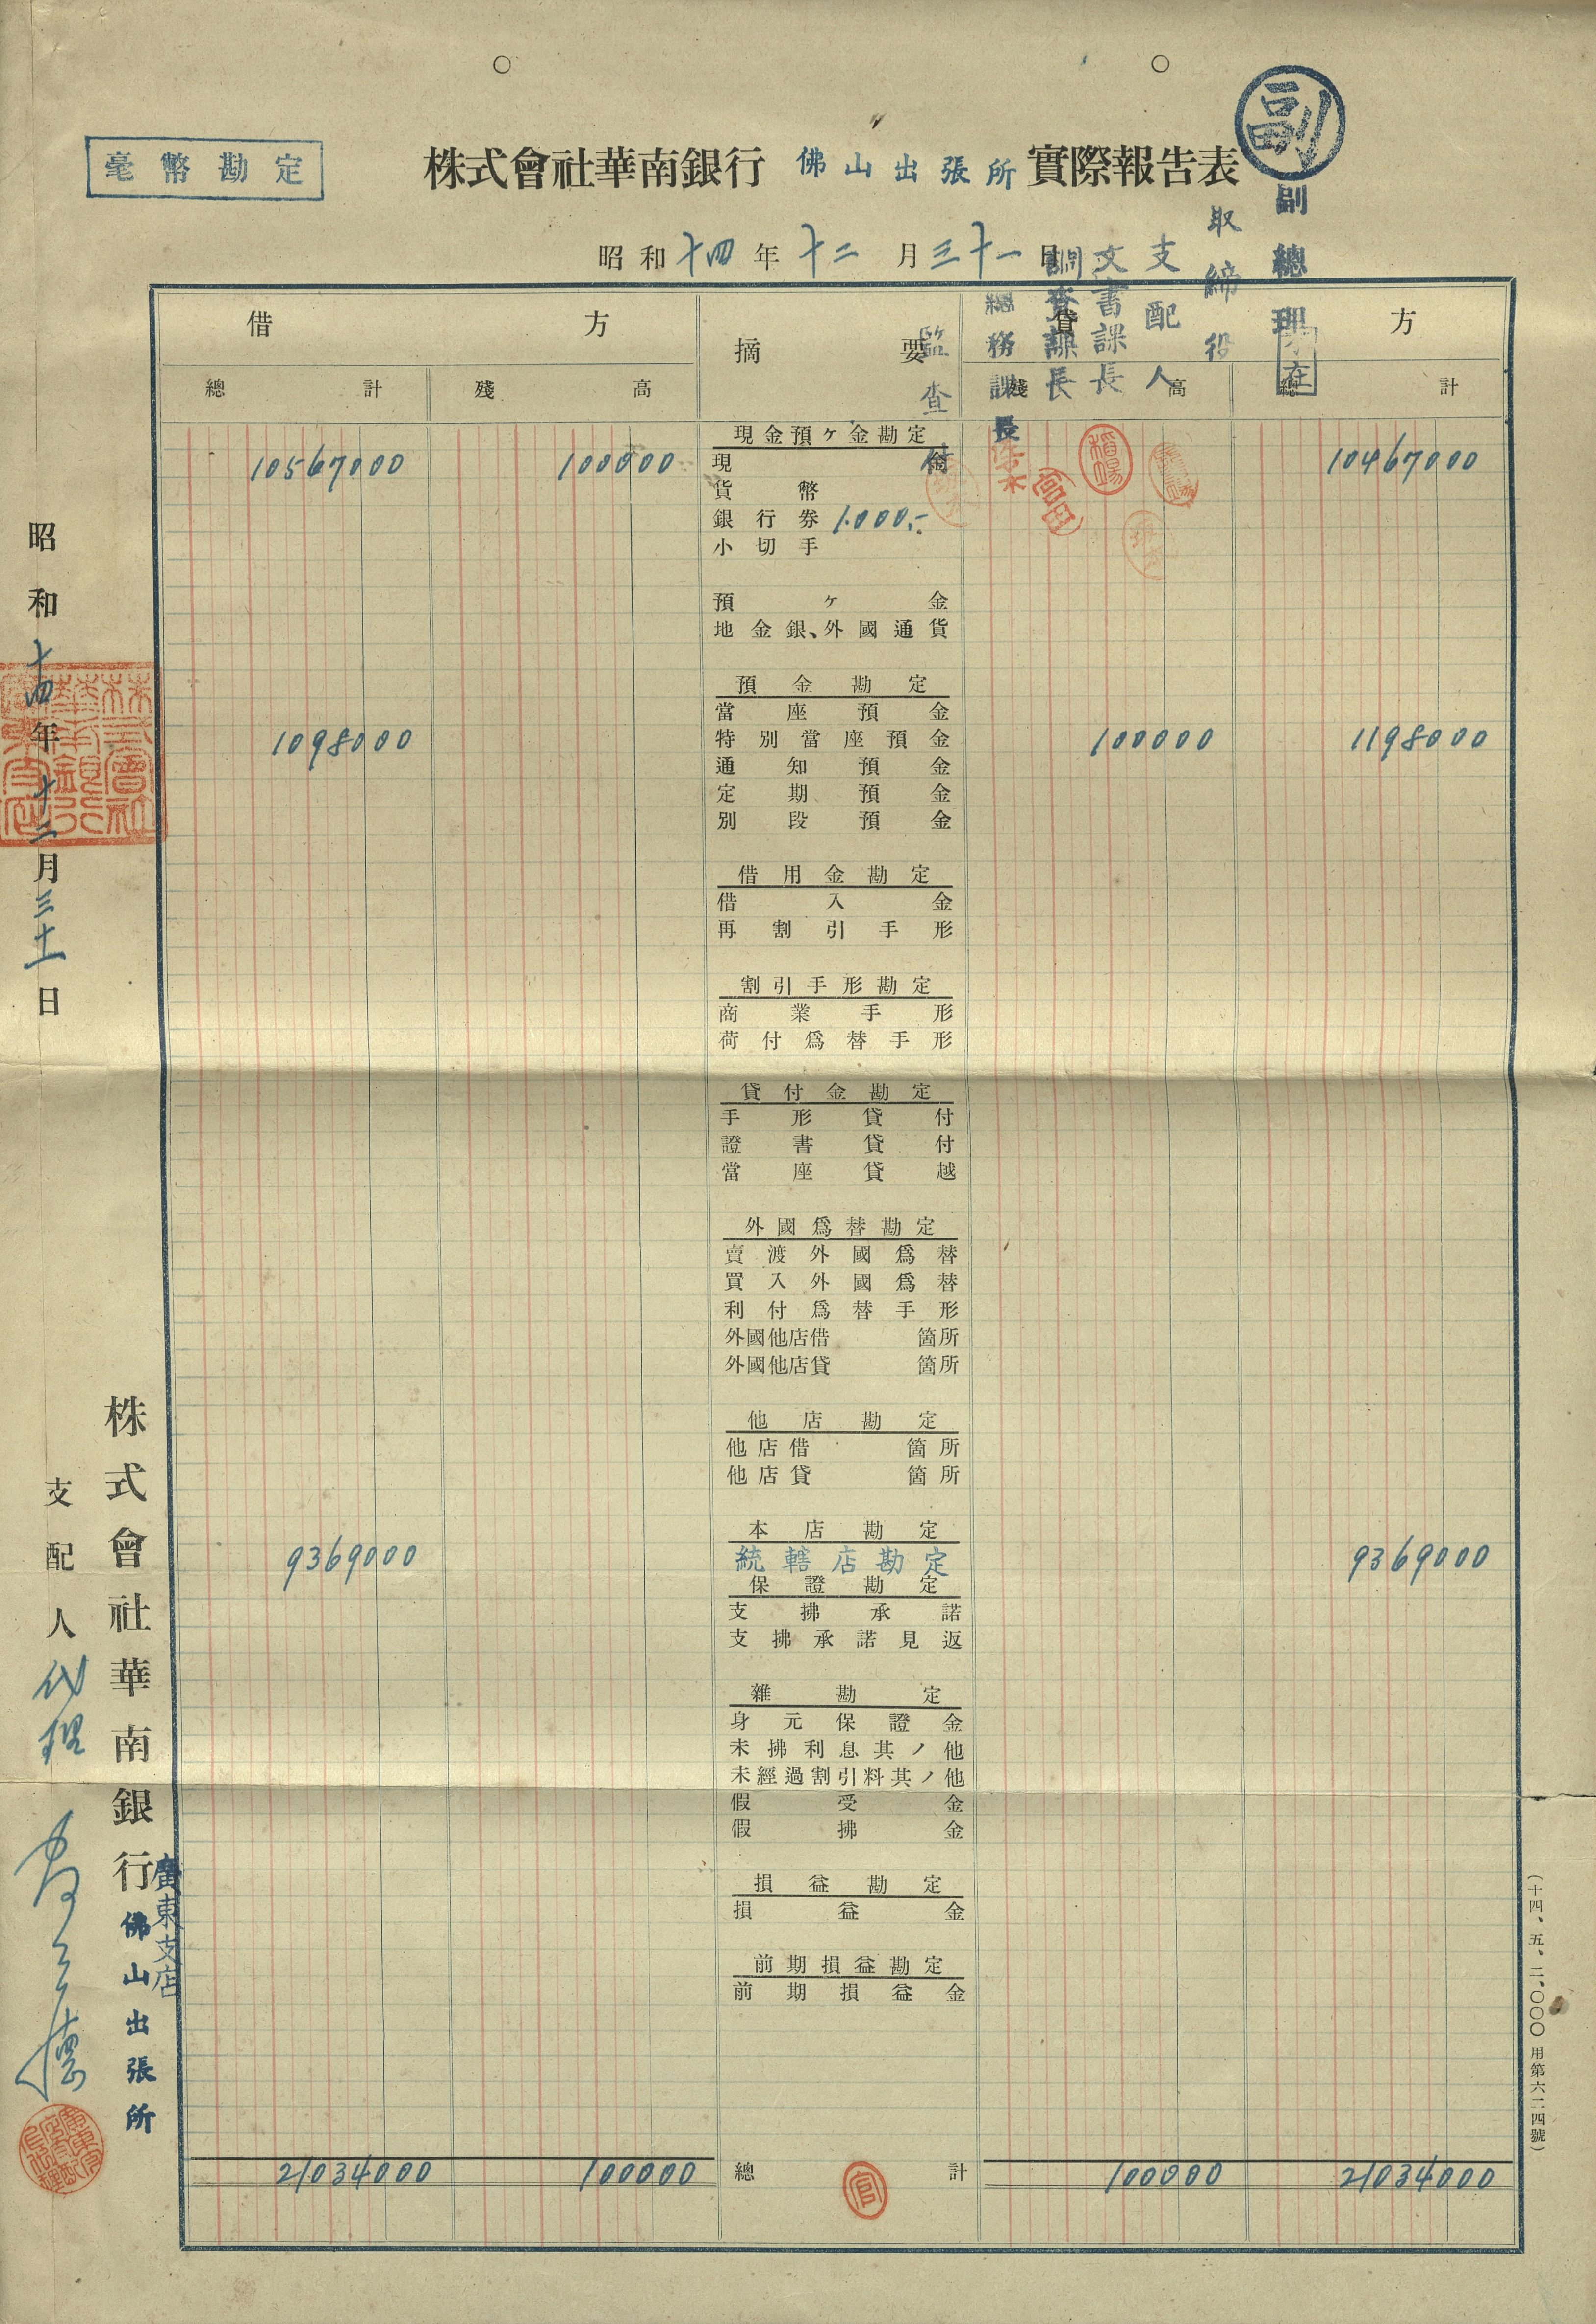 毫幣勘定
株式會社華南銀行 佛山出張所 實際報告表
副
副總理
取締役
支配人
文書課長
調査課長
總務課長
監査付
昭和十四年十二月三十一日
借方 摘要 貸方
總計 殘高 殘高 總計
現金預ケ金勘定
10567000 100000 現金 10467000
貨幣
銀行劵 1.000.-
小切手
預ケ金
地金銀、外國通貨
預金勘定
當座預金
1098000 特別當座預金 100000 1198000
通知預金
定期預金
別段預金
借用金勘定
借入金
再割引手形
割引手形勘定
商業手形
荷付爲替手形
貸付金勘定
手形貸付
證書貸付
當座貸越
外國爲替勘定
賣渡外國爲替
買入外國爲替
利付爲替手形
外國他店借 箇所
外國他店貸 箇所
他店勘定
他店借 箇所
他店貸 箇所
本店勘定
9369000 統轄店勘定 9369000
保證勘定
支拂承諾
支拂承諾見返
雜勘定
身元保證金
未拂利息其ノ他
未經過割引料其ノ他
假受金
假拂金
損益勘定
損益金
前期損益勘定
前期損益金
21034000 100000 總計 100000 21034000
昭和十四年十二月三十一日
株式會社華南銀行 廣東支店 佛山出張所
支配人代理
(十四、五、二、〇〇〇 用第六二四號)